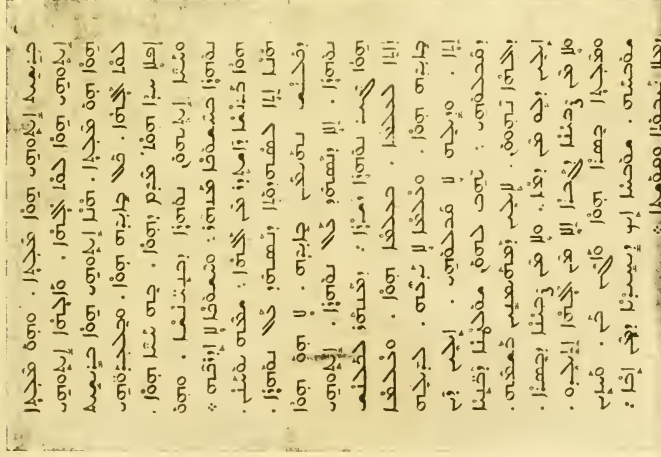 ܒܪܫܝܬ ܐܝܬܘܗܝ ܗܘܐ ܡܠܬܐ . ܘܗܘ ܡܠܬܐ
ܐܝܬܘܗܝ ܗܘܐ ܠܘܬ ܐܠܗܐ . ܘܐܠܗܐ ܐܝܬܘܗܝ
ܗܘܐ ܗܘ ܡܠܬܐ . ܗܢܐ ܐܝܬܘܗܝ ܗܘܐ ܒܪܫܝܬ
ܠܘܬ ܐܠܗܐ . ܟܠ ܒܐܝܕܗ ܗܘܐ . ܘܒܠܥܕܘܗܝ
ܐܦܠܐ ܚܕܐ ܗܘܬ ܡܕܡ ܕܗܘܐ . ܒܗ ܚܝܐ ܗܘܐ .
ܘܚܝܐ ܐܝܬܝܗܘܢ ܢܘܗܪܐ ܕܒܢܝܢܫܐ ܘܗܘ
ܢܘܗܪܐ ܒܚܫܘܟܐ ܡܢܗܪ : ܘܚܫܘܟܐ ܠܐ ܐܕܪܟܗ ܀
ܗܘܐ ܒܪܢܫܐ ܕܐܫܬܕܪ ܡܢ ܐܠܗܐ : ܫܡܗ ܝܘܚܢܢ .
ܗܢܐ ܐܬܐ ܠܣܗܕܘܬܐ ܕܢܣܗܕ ܥܠ ܢܘܗܪܐ .
ܕܟܠܢܫ ܢܗܝܡܢ ܒܐܝܕܗ . ܠܐ ܗܘ ܗܘܐ
ܢܘܗܪܐ . ܐܠܐ ܕܢܣܗܕ ܥܠ ܢܘܗܪܐ . ܐܝܬܘܗܝ
ܗܘܐ ܓܝܪ ܢܘܗܪܐ ܕܫܪܪܐ : ܕܡܢܗܪ ܠܟܠܢܫ
ܕܐܬܐ ܠܥܠܡܐ . ܒܥܠܡܐ ܗܘܐ . ܘܥܠܡܐ
ܒܐܝܕܗ ܗܘܐ . ܘܥܠܡܐ ܠܐ ܝܕܥܗ . ܠܕܝܠܗ
ܐܬܐ . ܘܕܝܠܗ ܠܐ ܩܒܠܘܗܝ . ܐܝܠܝܢ ܕܝܢ
ܕܩܒܠܘܗܝ : ܝܗܒ ܠܗܘܢ ܫܘܠܛܢܐ ܕܒܢܝܐ
ܕܐܠܗܐ ܢܗܘܘܢ . ܠܐܝܠܝܢ ܕܡܗܝܡܢܝܢ ܒܫܡܗ .
ܐܝܠܝܢ ܕܠܘ ܡܢ ܕܡܐ . ܘܠܐ ܡܢ ܨܒܝܢܐ ܕܒܣܪܐ .
ܘܠܐ ܡܢ ܨܒܝܢܐ ܕܓܒܪܐ ܐܠܐ ܡܢ ܐܠܗܐ ܐܬܝܠܕܘ .
ܘܡܠܬܐ ܒܣܪܐ ܗܘܐ ܘܐܓܢ ܒܢ . ܘܚܙܝܢ
ܫܘܒܚܗ . ܫܘܒܚܐ ܐܝܟ ܕܝܚܝܕܝܐ ܕܡܢ ܐܒܐ :
ܕܡܠܐ ܛܝܒܘܬܐ ܘܩܘܫܬܐ ܀